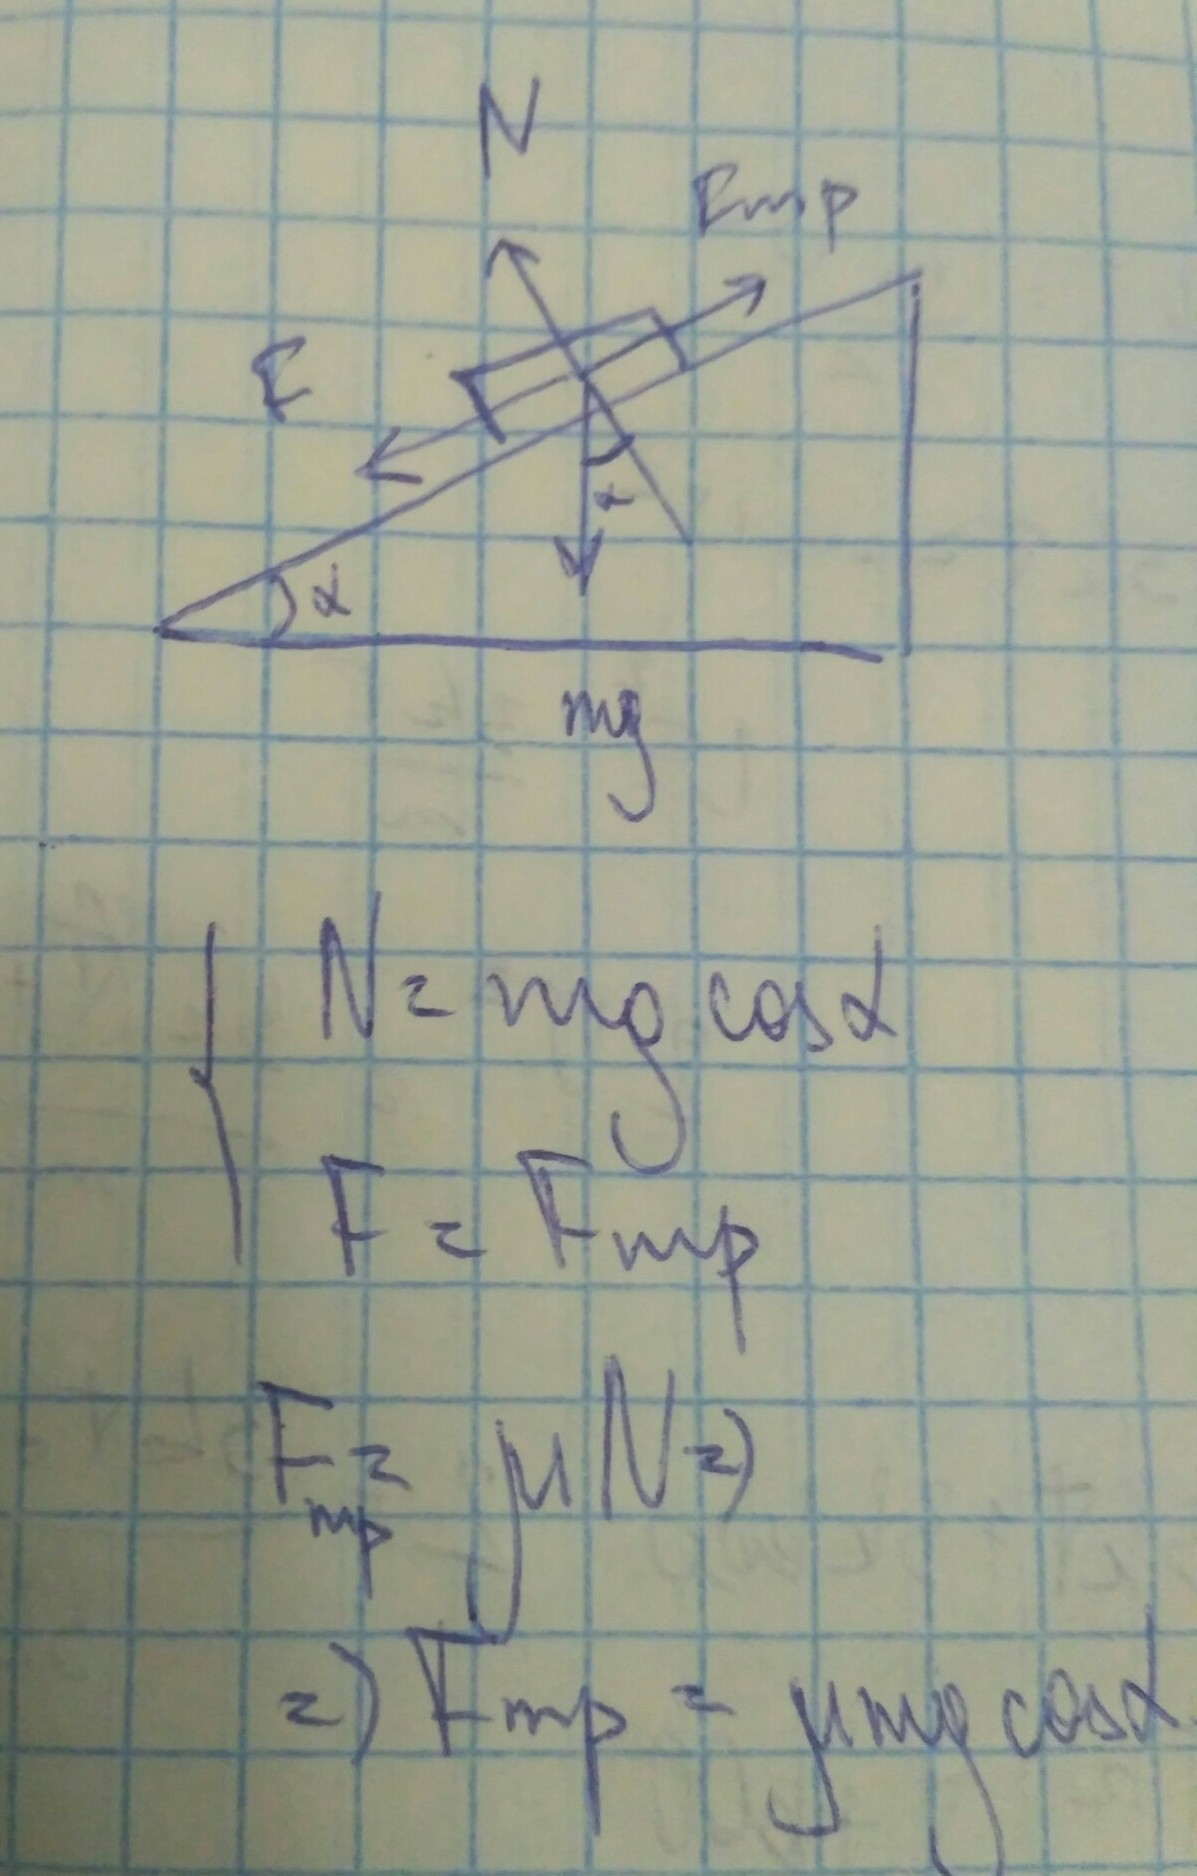 N
Fтр
F
α
α
mg
N = mg cosα
F = Fтр
Fтр = μN =>
=> Fтр = μmg cosα